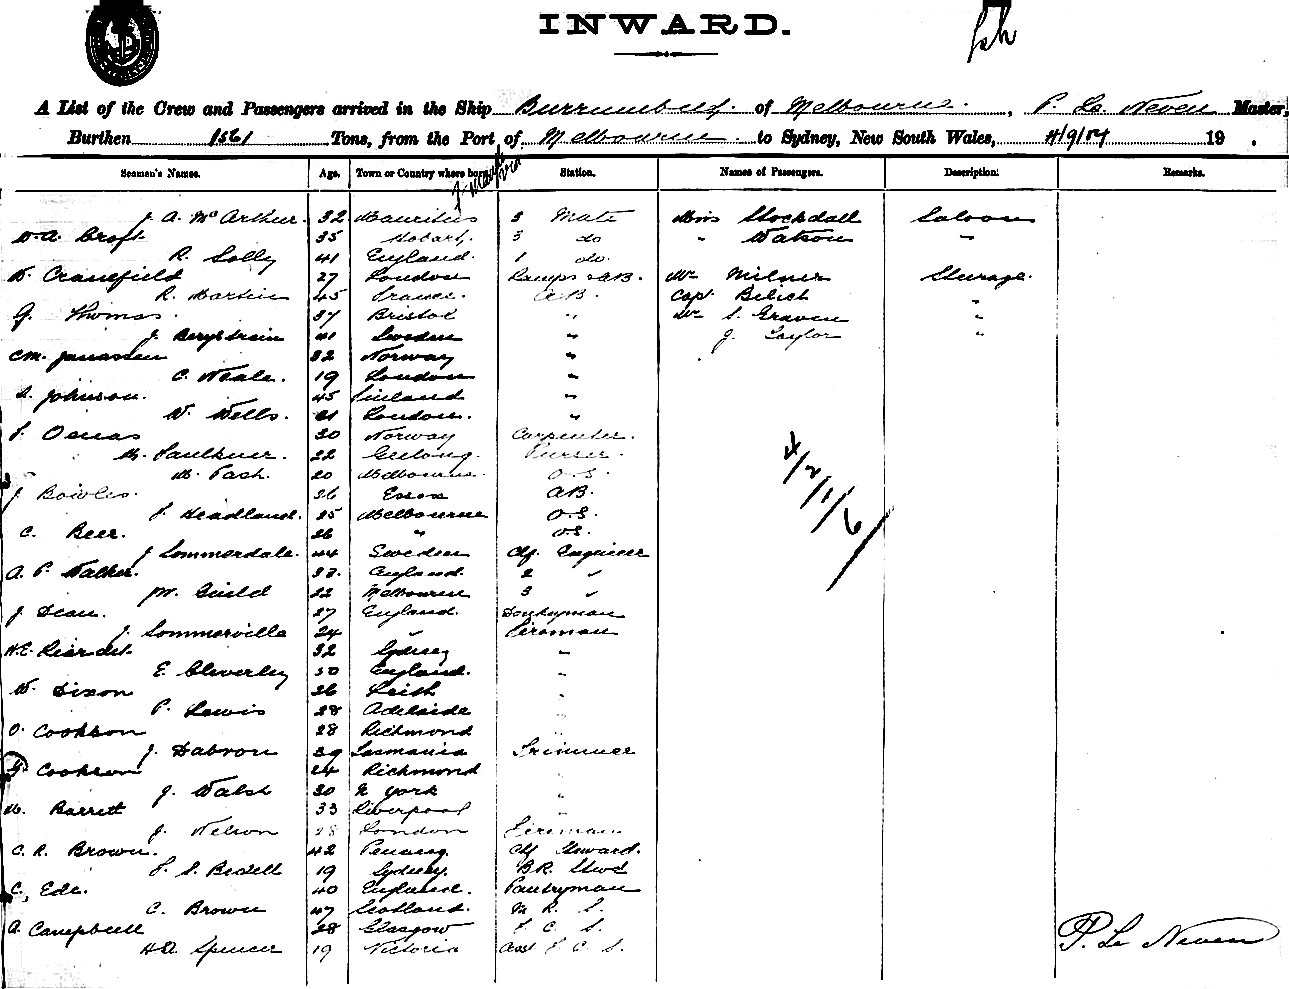 INWARD.
A List of the Crew and Passengers arrived in the Ship Burrumbeet of Melbourne, P. Le Neven Master,
Burthen 1561 Tons, from the Port of Melbourne to Sydney, New South Wales, 4/9/ 19 .
Seamen's Names. Age. Town or Country where born. Station. Names of Passengers. Description. Remarks.
J. A. McArthur. 32 Mauritius Mate Miss Stockdall Saloon
W.A. Croft 35 Hobart. 3 do " Watson "
R. Solly 41 England. 1 do.
W. Cranefield 27 London Lamps & AB. Mr Milner Steerage.
R. Martin 45 France. A.B. Capt Bilich "
G. Thomas. 37 Bristol " Mr S. Graven "
J. 41 Sweden " J. Taylor "
32 Norway "
C. Neale. 19 London "
Johnson. 45 Finland "
W. Wells. 21 London. "
30 Norway Carpenter.
M. Faulkner. 22 Geelong. Purser.
M. Pash. 20 Melbourne. O.S.
J Bowles. 26 Essex AB.
Headland. 25 Melbourne O.S.
C. Beer. 26 " O.S.
4/2/1/6
J Sommerdale. 44 Sweden Chf. Engineer
A. P. Walker. England. 2 "
W. Guild 22 Melbourne 3 "
J Dean. 27 England. Donkeyman
J. Sommerville 24 " Fireman
32 Sydney "
E. Cleverley 30 England. "
W. Dixon 26 Leith "
P. Lewis 28 Adelaide "
O. Cookson 28 Richmond "
J. Dabron 39 Tasmania Trimmer
Cookson 24 Richmond "
J. Walsh 30 N York "
M. Barrett 33 Liverpool "
J. Nelson 28 London Fireman
C. R. Brown. 42 Penang. Chf Steward.
S. 19 Sydney. B.R. Stwd
C. Ede. 40 England. Pantryman
C. Brown 47 Scotland. M R. S.
A. Campbell 28 Glasgow F C S.
H.A. Spencer 19 Victoria Asst F C S.
P. Le Neven